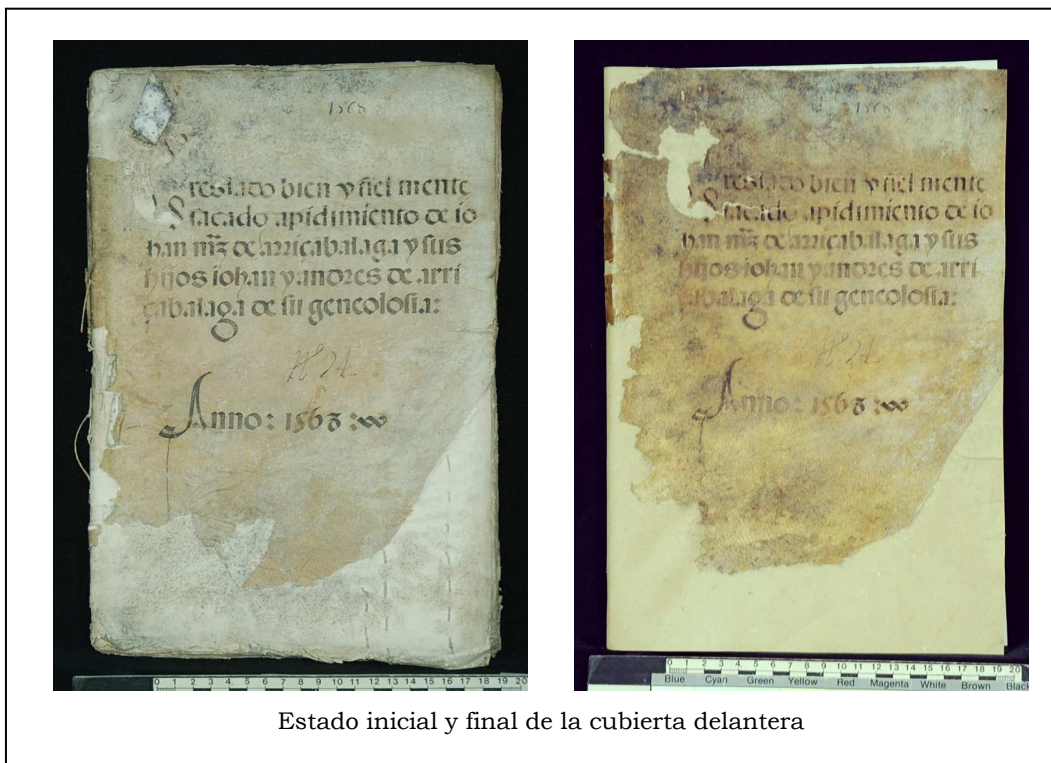 1568
reslado bien y fiel mente
sacado apidimiento de io
han mz̃ de arricabalaga y sus
hijos iohan y andres de arri
cabalaga de su geneolosia:
Nº 24
Anno: 1563:
0 1 2 3 4 5 6 7 8 9 10 11 12 13 14 15 16 17 18 19 20
1568
reslado bien y fiel mente
sacado apidimiento de io
han mz̃ de arricabalaga y sus
hijos iohan y andres de arri
cabalaga de su geneolosia:
Nº 24
Anno: 1563:
0 1 2 3 4 5 6 7 8 9 10 11 12 13 14 15 16 17 18 19 20
Blue Cyan Green Yellow Red Magenta White Brown Black
Estado inicial y final de la cubierta delantera